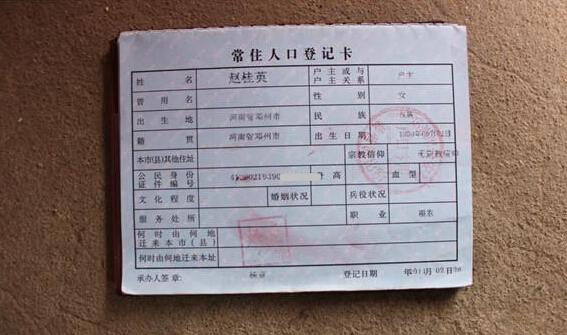 常住人口登记卡
姓 名 赵桂英 户主或与户主关系 户主
曾用名 性 别 女
出生地 河南省邓州市 民 族
籍 贯 河南省邓州市 出生日期
本市(县)其他住址 宗教信仰 无宗教信仰
公民身份证件编号 身高 血型
文化程度 婚姻状况 兵役状况
服务处所 职 业
何时由何地迁来本市(县)
何时由何地迁来本址
承办人签章: 登记日期